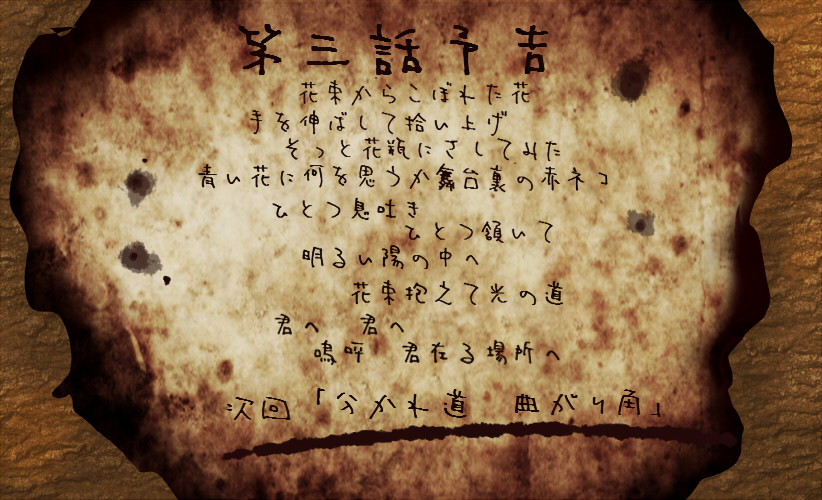 第三話予告
花束からこぼれた花
手を伸ばして拾い上げ
そっと花瓶にさしてみた
青い花に何を思うか舞台裏の赤ネコ
ひとつ息吐き
ひとつ頷いて
明るい陽の中へ
花束抱えて光の道
君へ　君へ
嗚呼　君在る場所へ
次回「分かれ道　曲がり角」